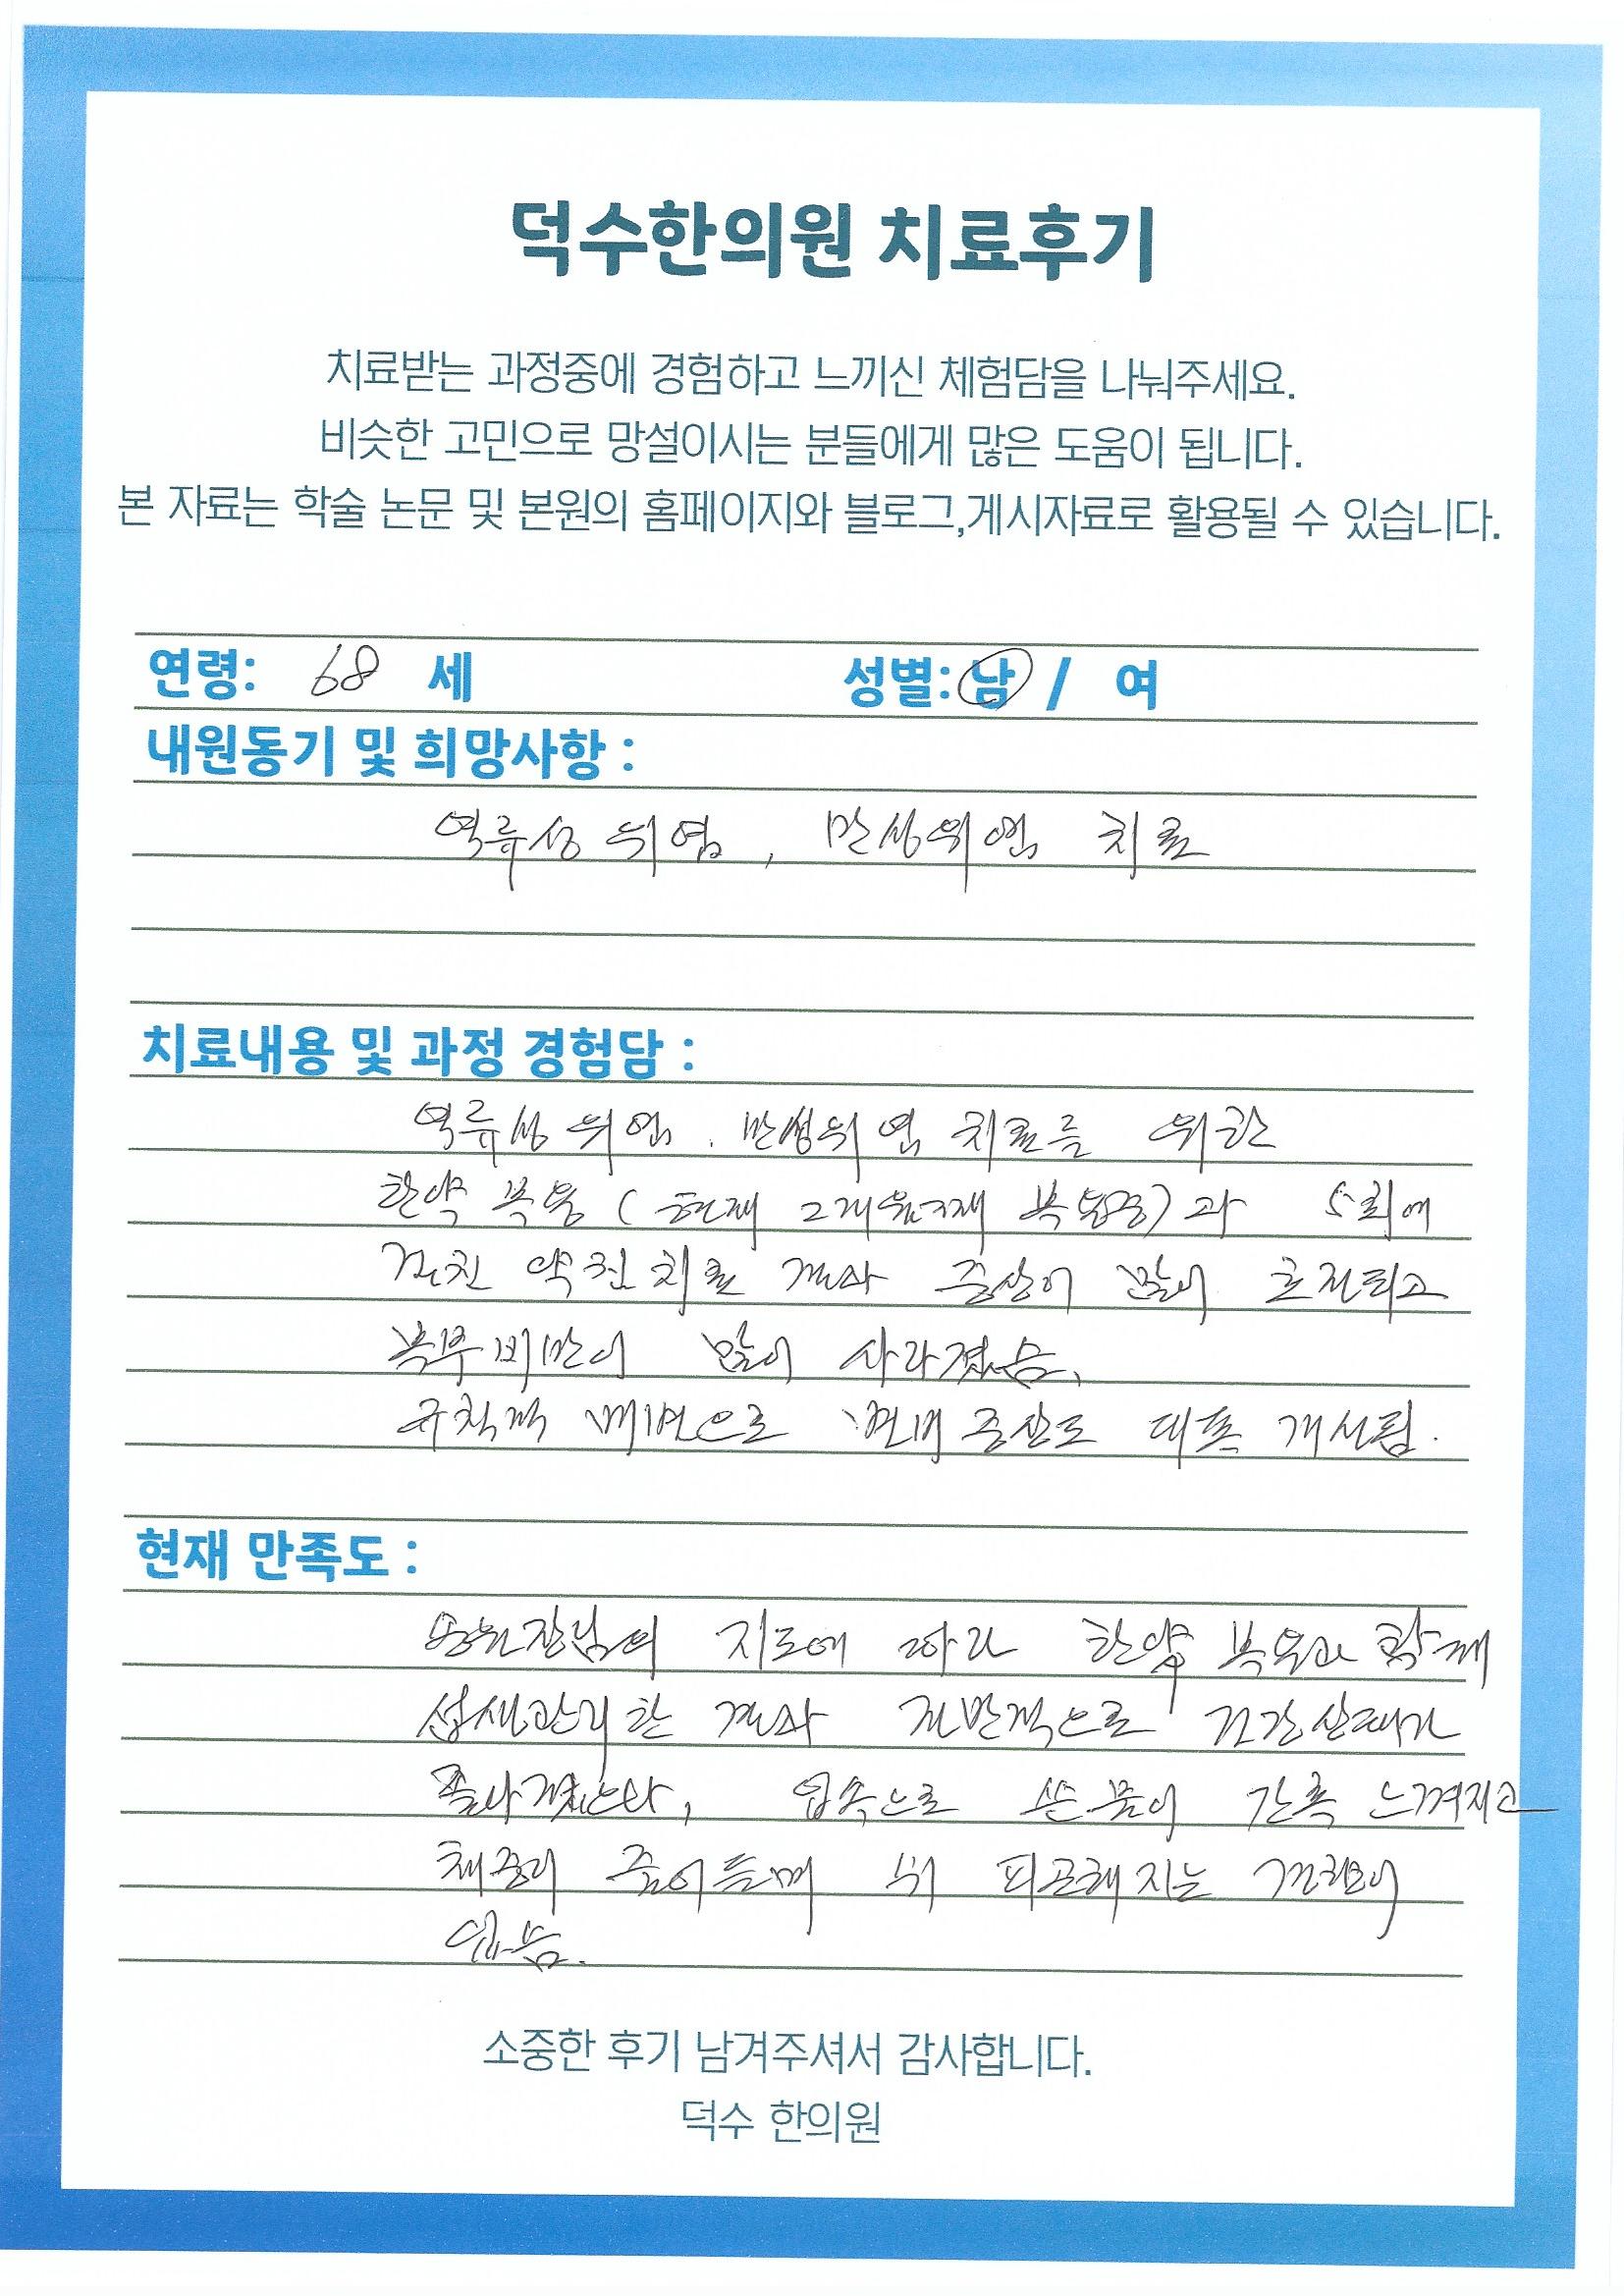 덕수한의원 치료후기
치료받는 과정중에 경험하고 느끼신 체험담을 나눠주세요.
비슷한 고민으로 망설이시는 분들에게 많은 도움이 됩니다.
본 자료는 학술 논문 및 본원의 홈페이지와 블로그,게시자료로 활용될 수 있습니다.
연령: 68 세 성별: 남 / 여
내원동기 및 희망사항 :
역류성 위염, 만성위염 치료
치료내용 및 과정 경험담 :
역류성 위염. 만성위염 치료를 위한
한약 복용 ( 현재 2개월째 복용중)과 5회에
걸친 약침치료 결과 증상이 많이 호전되고
복부비만이 많이 사라졌음,
규칙적 배변으로 변비 증상도 대폭 개선됨.
현재 만족도 :
지도에 따라 한약 복용과 함께
섭생관리한 결과 전반적으로 건강상태가
좋아졌으나, 입속으로 쓴물이 간혹 느껴지고
체중이 줄어들며 쉬 피곤해지는 경향이
있음.
소중한 후기 남겨주셔서 감사합니다.
덕수 한의원